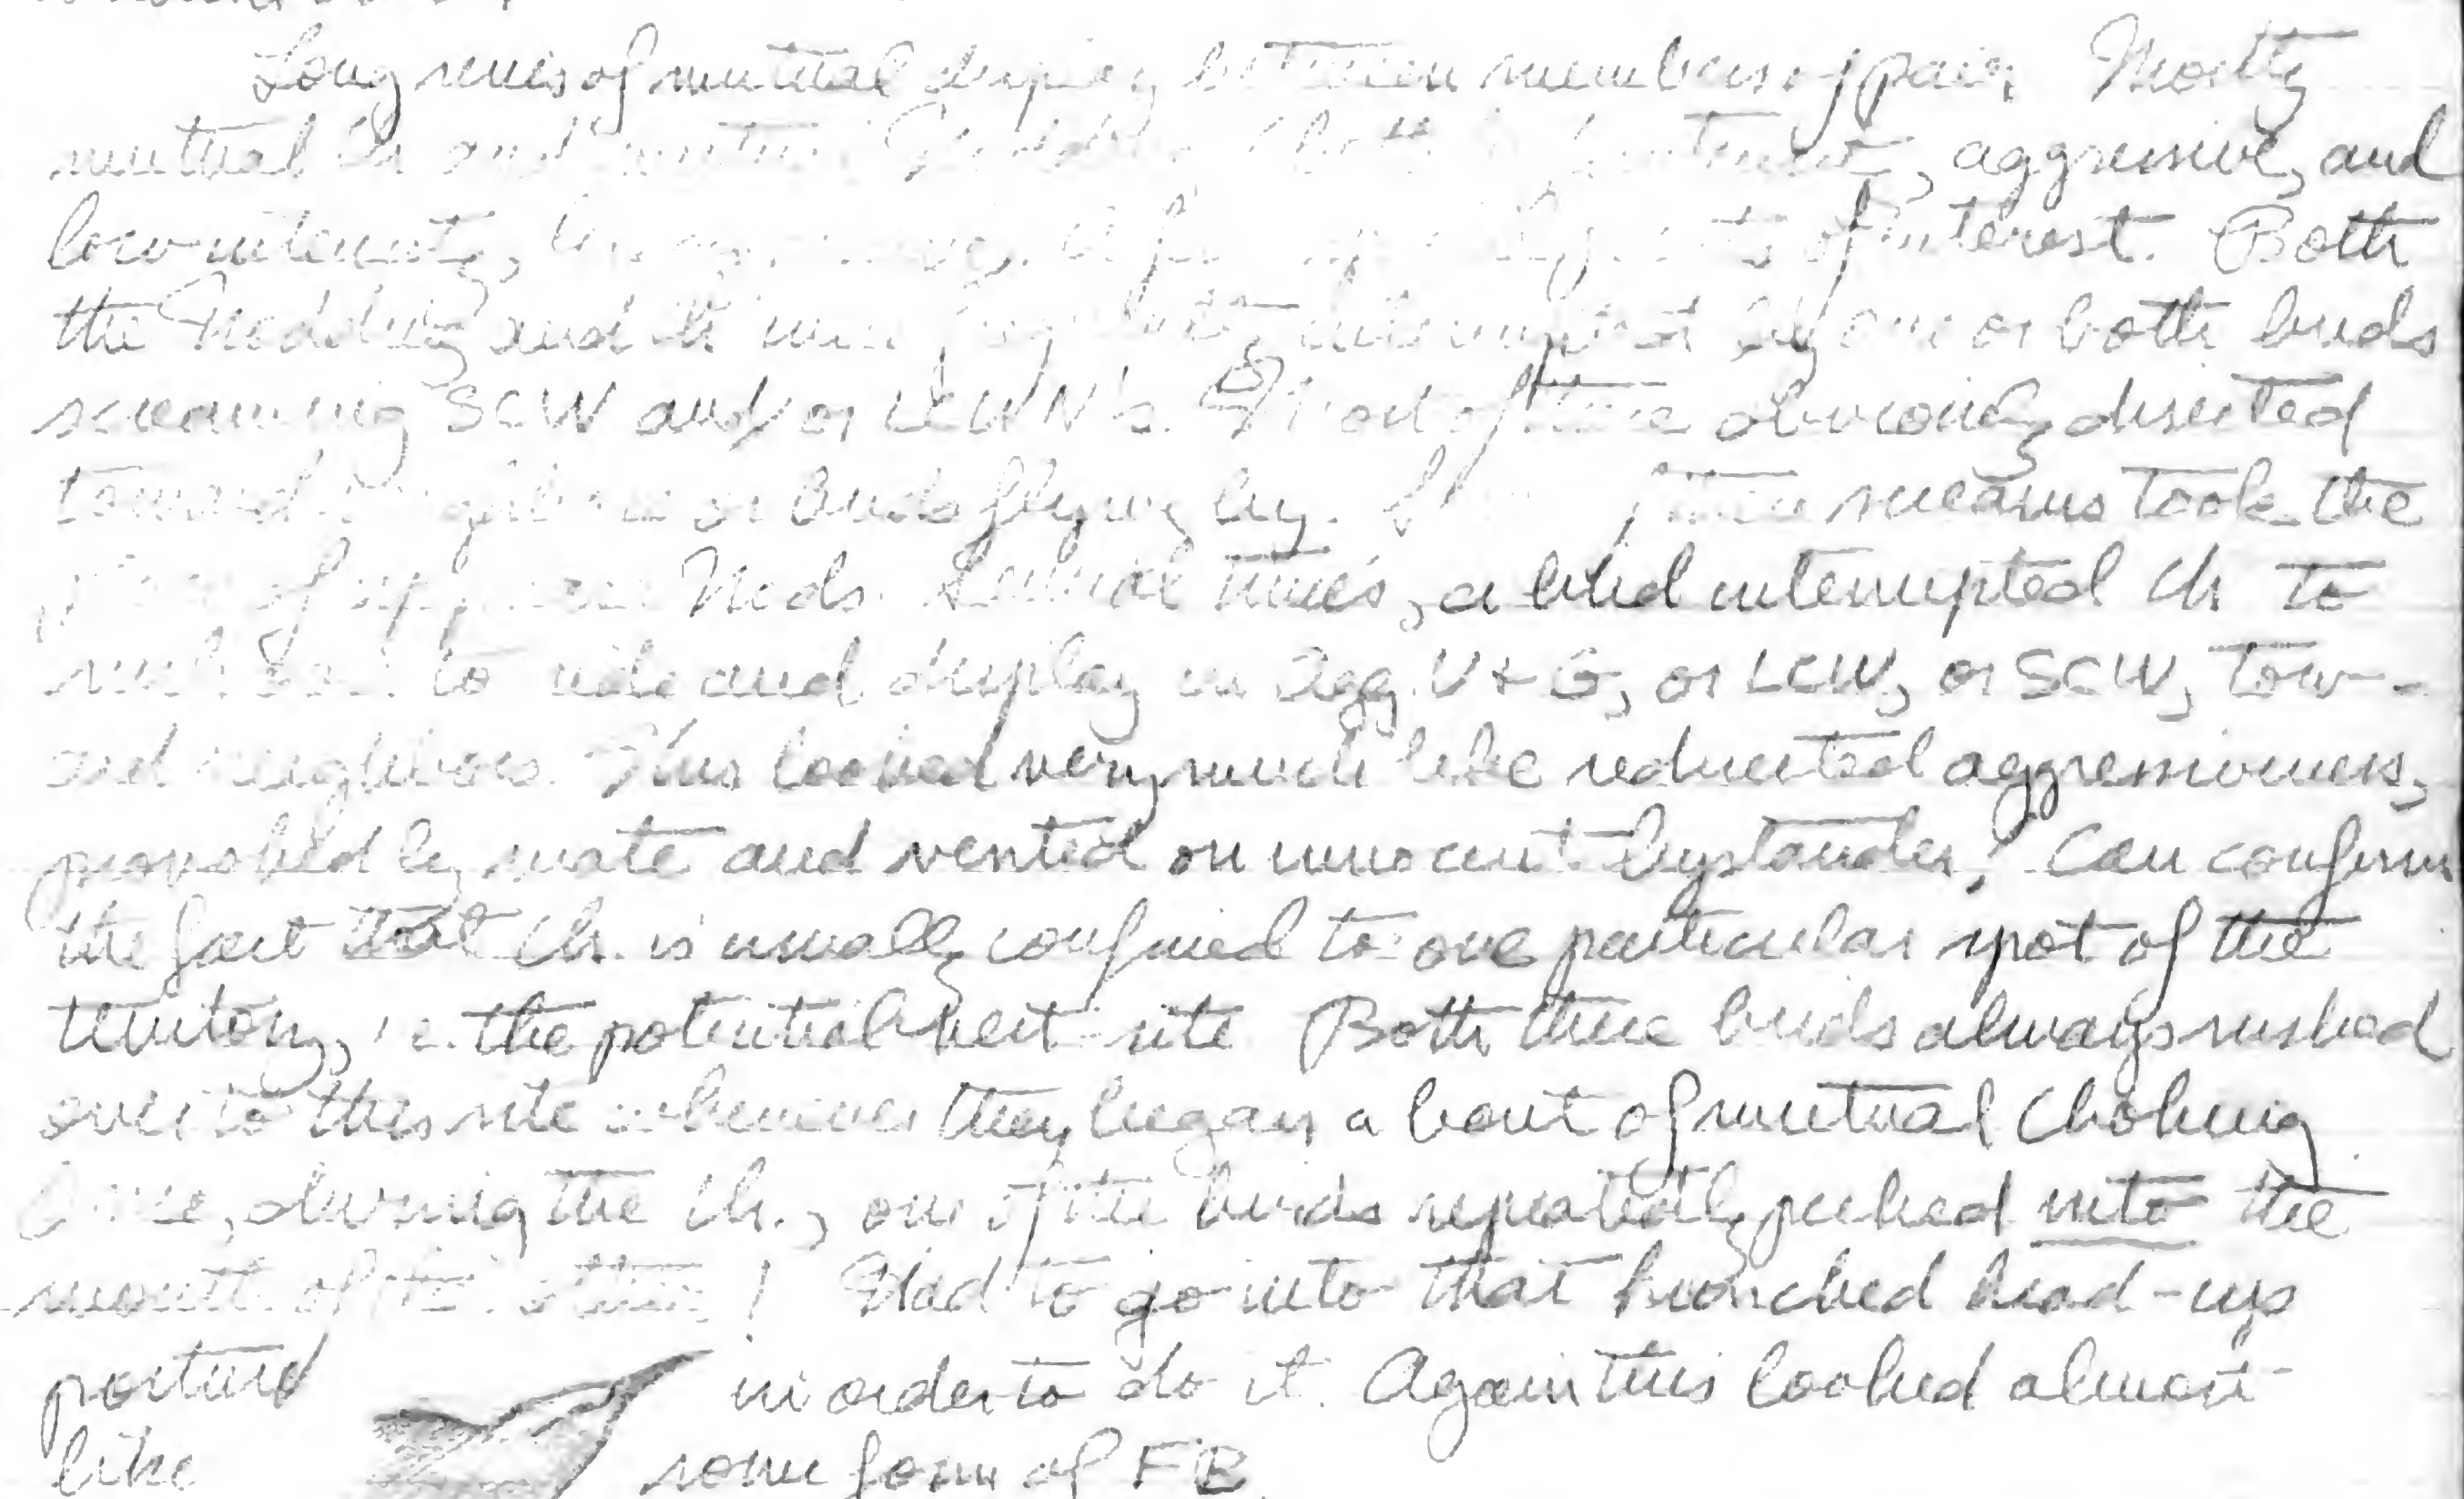 Long series of mutual display between members of pair. Mostly
mutual Ch and Nodding both aggressive, and
low intensity, of interest. Both
the Nodding and Ch were interrupted by one or both birds
screaming SCW and/or LCWN's. Most of these obviously directed
toward or birds flying by. these means took the
of Nods. Several times, a bird interrupted Ch to
rush to side and display in agg. U + G, or LCW, or SCW, tow-
ard neighbors. This looked very much like redirected aggressiveness,
provoked by mate and vented on innocent bystander! Can confirm
the fact that Ch. is usually confined to one particular spot of the
territory, i.e. the potential nest-site. Both these birds always rushed
over to this site whenever they began a bout of mutual Choking.
Once, during the Ch., one of the birds repeatedly pecked into the
mouth of the other! Had to go into that hunched head-up
posture in order to do it. Again this looked almost
like some form of FB.